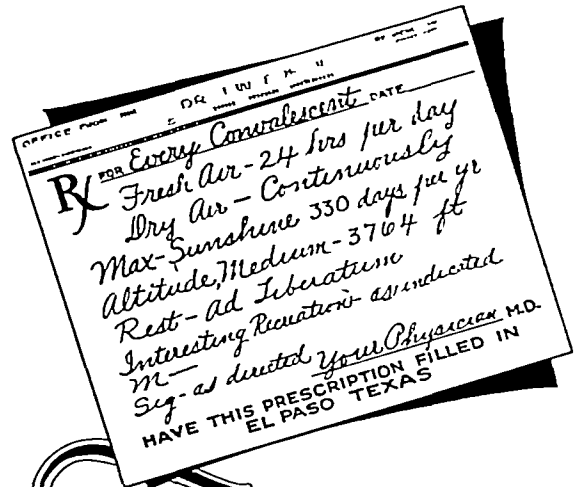 FOR Every Convalescent DATE
Rx Fresh Air - 24 hrs per day
Dry Air - Continuously
Max - Sunshine 330 days per yr
Altitude, Medium - 3764 ft
Rest - Ad Liberatum
Interesting Recreation - as indicated
M—
Sig - as directed Your Physician M.D.
HAVE THIS PRESCRIPTION FILLED IN
EL PASO TEXAS